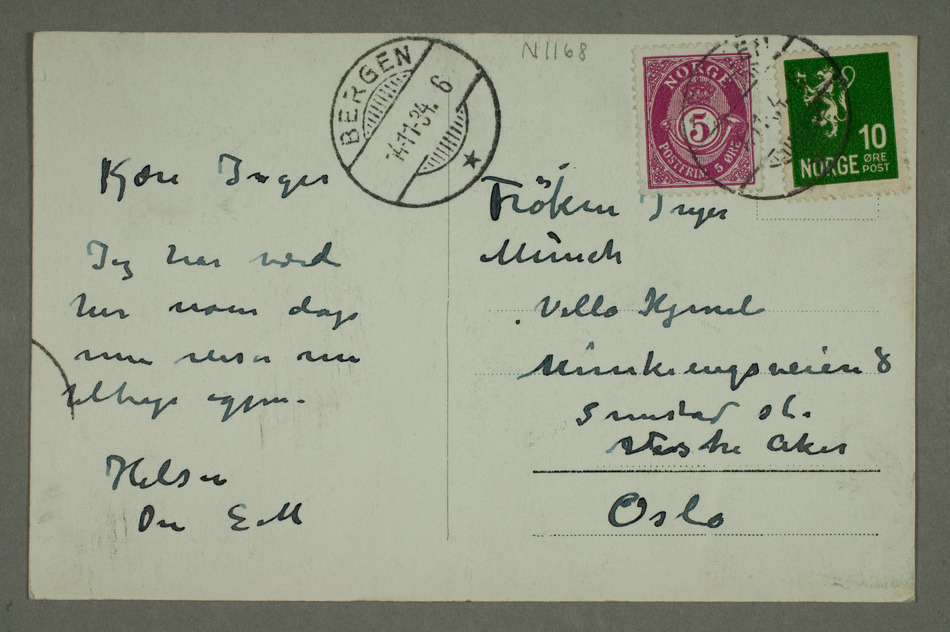 N1168
BERGEN
14·11·34. 6
NORGE
5
POSTFRIM. 5 ØRE
10
NORGE ØRE POST
Kjære Inger
Jeg har været
her noen dage
men reiser nu
tilbage igjen.
Hilsen
Din E M
Frøken Inger
Munch
Villa Hjemli
Munkengsveien 8
Smestad st.
Vestre Aker
Oslo